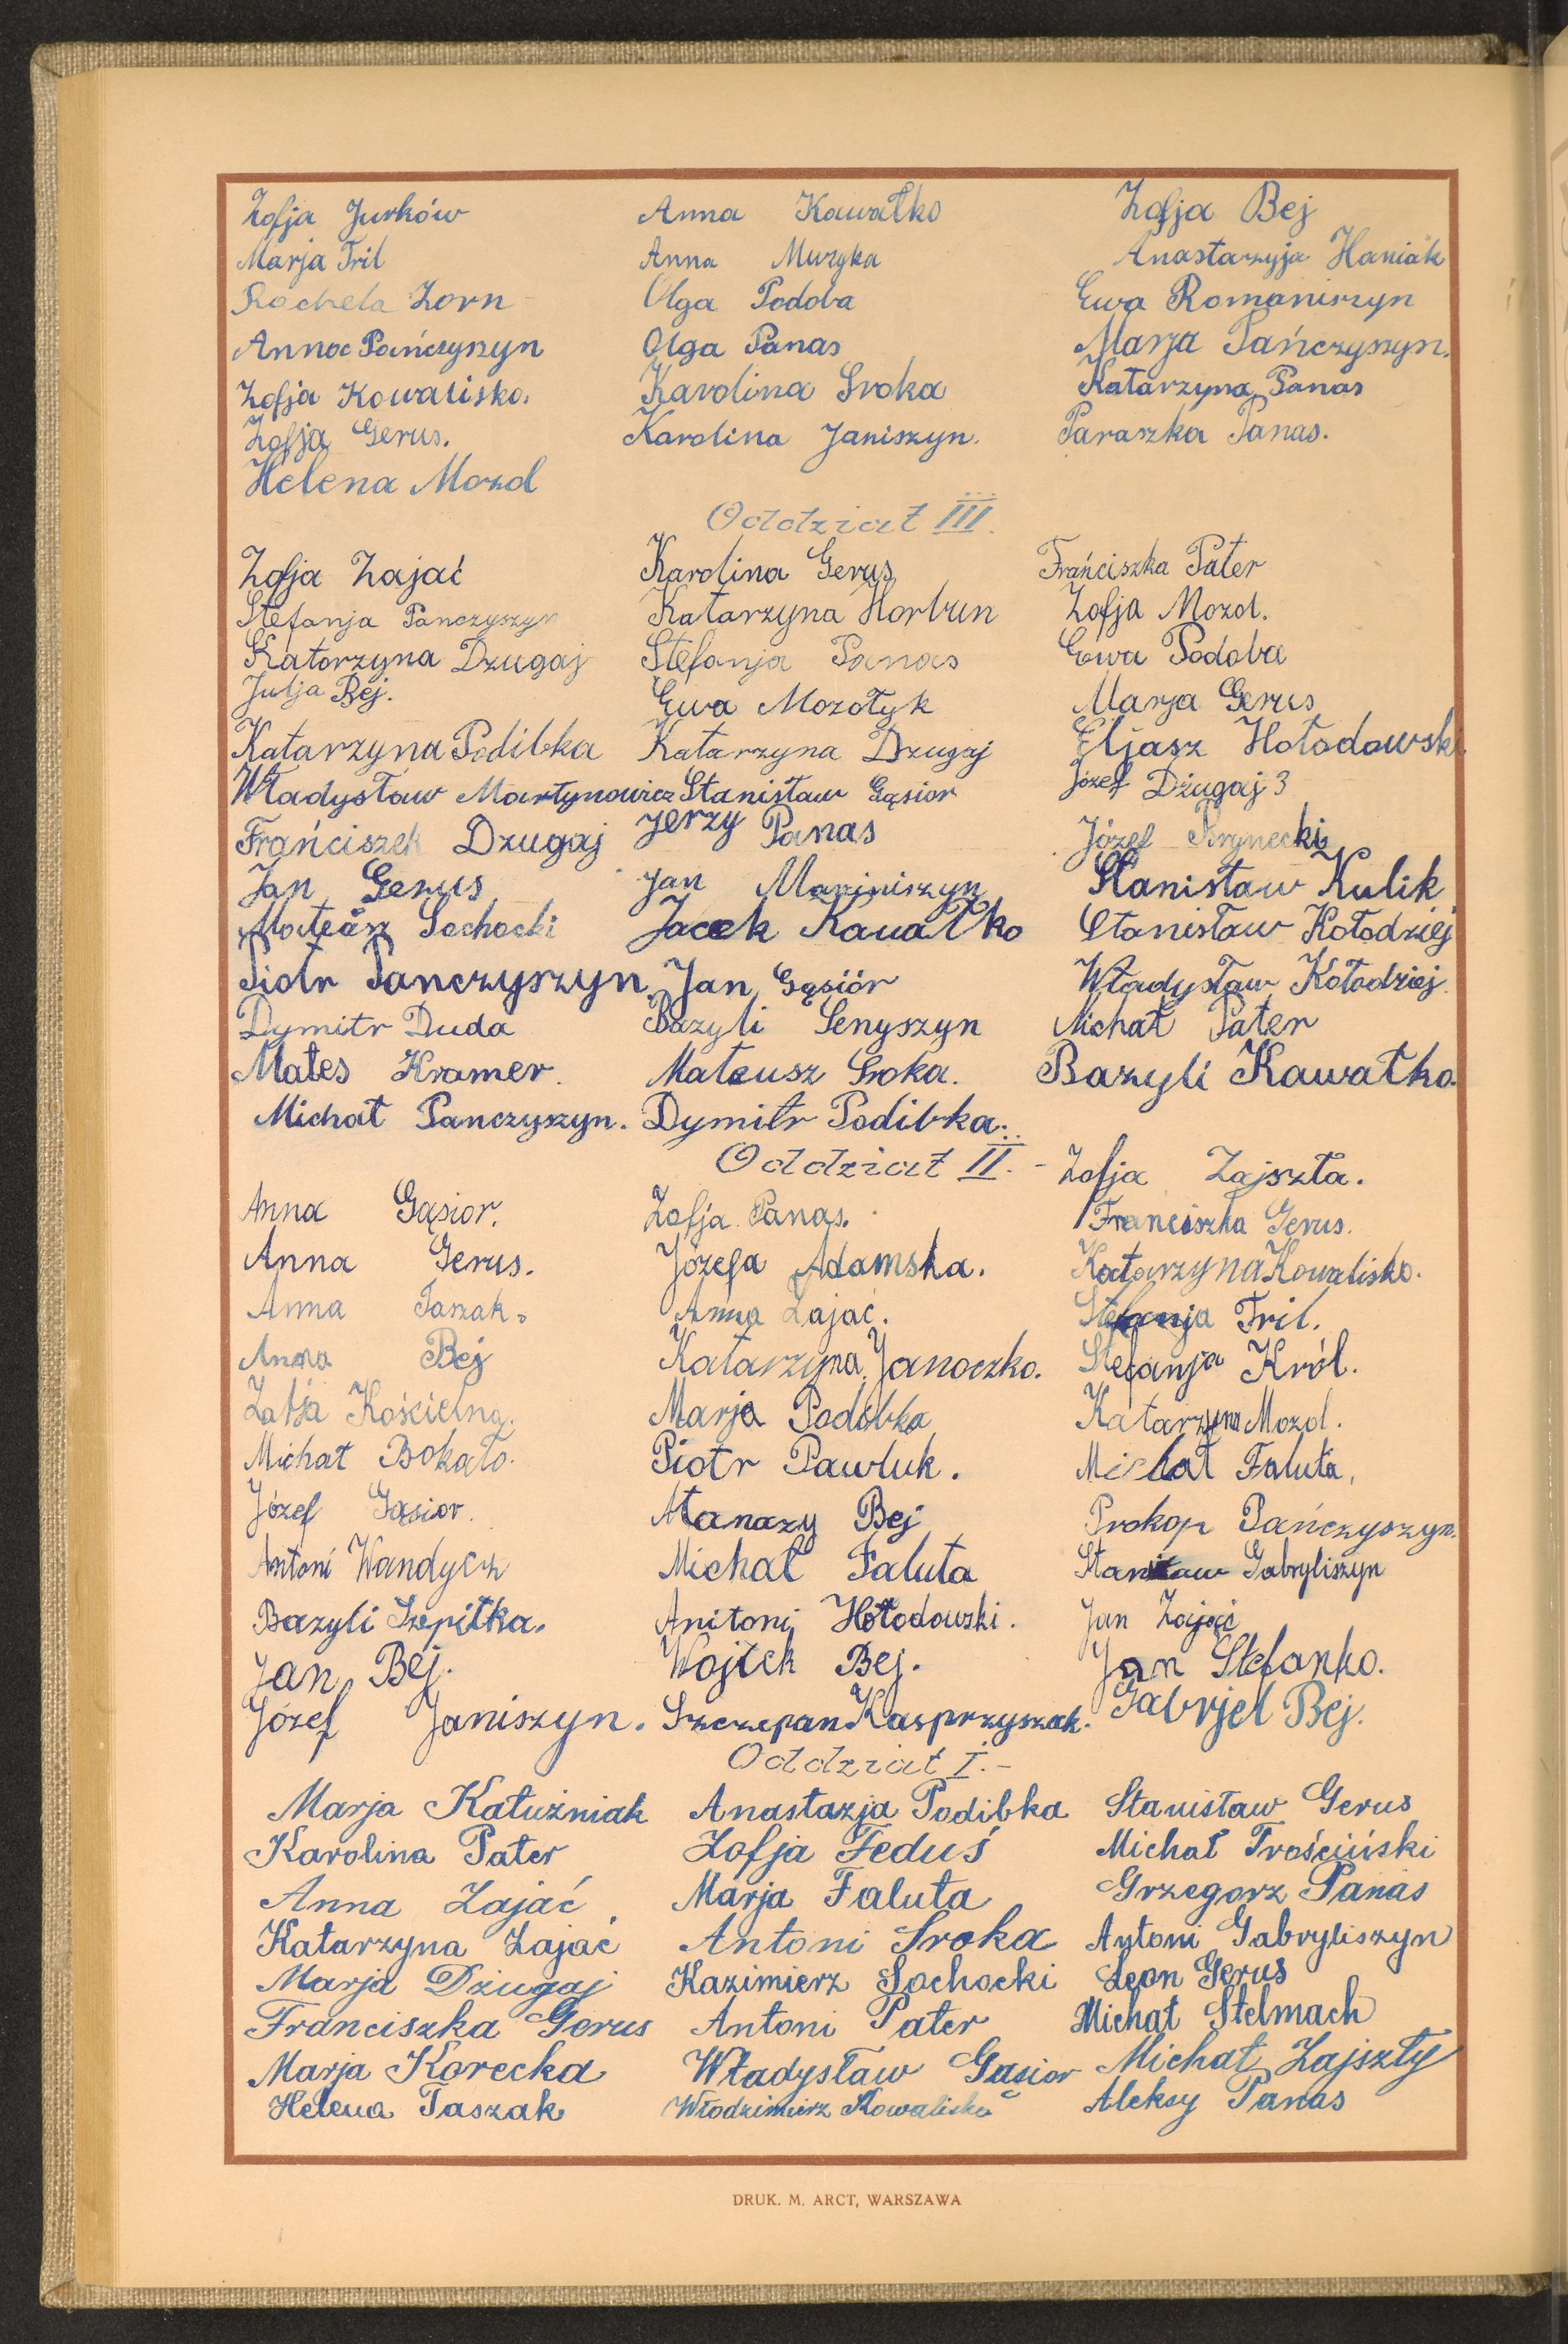 Zofja Jurków Anna Kawałko Zofja Bej
Marja Fril Anna Muzyka Anastazyja Haniak
Rachela Zorn Olga Podoba Ewa Romaniszyn
Anna Pańczyszyn Olga Panas Marja Pańczyszyn.
Zofja Kowalisko. Karolina Sroka Katarzyna Panas
Zofja Gerus. Karolina Janiszyn. Paraszka Panas.
Helena Mozol
Oddział III.
Zofja Zajać Karolina Gerus Frańciszka Pater
Stefanja Panczyszyn Katarzyna Horbun Zofja Mozol.
Katarzyna Dzugaj Stefanja Panas Ewa Podoba
Julja Bej. Ewa Mozołyk Marja Gerus
Katarzyna Podibka Katarzyna Dzugaj Eljasz Hołodowski
Władysław Martynowicz Stanisław Gąsior Józef Dziugaj 3
Frańciszek Dzugaj Jerzy Panas Józef Rzynecki
Jan Gerus Jan Mariniszyn Stanisław Kulik
Mateusz Sochocki Jacek Kawałko Stanisław Kołodziej
Piotr Panczyszyn Jan Gąsiór Władysław Kołodziej.
Dymitr Duda Bazyli Senyszyn Michał Pater
Mates Kramer. Mateusz Sroka. Bazyli Kawałko.
Michał Panczyszyn. Dymitr Podibka.
Oddział II. - Zofja Zajszła.
Anna Gąsior. Zofja Panas. Franciszka Gerus.
Anna Gerus. Józefa Adamska. Katarzyna Kowalisko.
Anna Taszak. Anna Zajać. Stefanja Fril.
Anna Bej Katarzyna Janoczko. Stefanja Król.
Zofja Kościelna. Marja Podibka Katarzyna Mozol.
Michał Bokało. Piotr Pawluk. Michał Faluta,
Józef Gąsior. Atanazy Bej Prokop Pańczyszyn.
Antoni Wandycz Michał Faluta Stanisław Gabryliszyn
Bazyli Szpitka. Anitoni Hołodowski. Jan Zajać
Jan Bej. Wojtek Bej. Jan Stefanko.
Józef Janiszyn. Szczepan Kasprzyszak. Gabrjel Bej.
Oddział I. -
Marja Kałużniak Anastazja Podibka Stanisław Gerus
Karolina Pater Zofja Feduś Michał Trościński
Anna Zajać Marja Faluta Grzegorz Panas
Katarzyna Zająć Antoni Sroka Antoni Gabryliszyn
Marja Dziugaj Kazimierz Sochocki Leon Gerus
Franciszka Gerus Antoni Pater Michał Stelmach
Marja Korecka Władysław Gąsior Michał Zajszły
Helena Taszak Włodzimierz Kowalisko Aleksy Panas
DRUK. M. ARCT, WARSZAWA